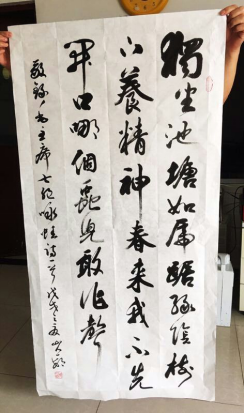 獨坐池塘如虎踞綠陰樹
下養精神春來我不先
開口哪個蟲兒敢作聲
敬録毛主席七絶咏蛙詩一首戊戌之夏